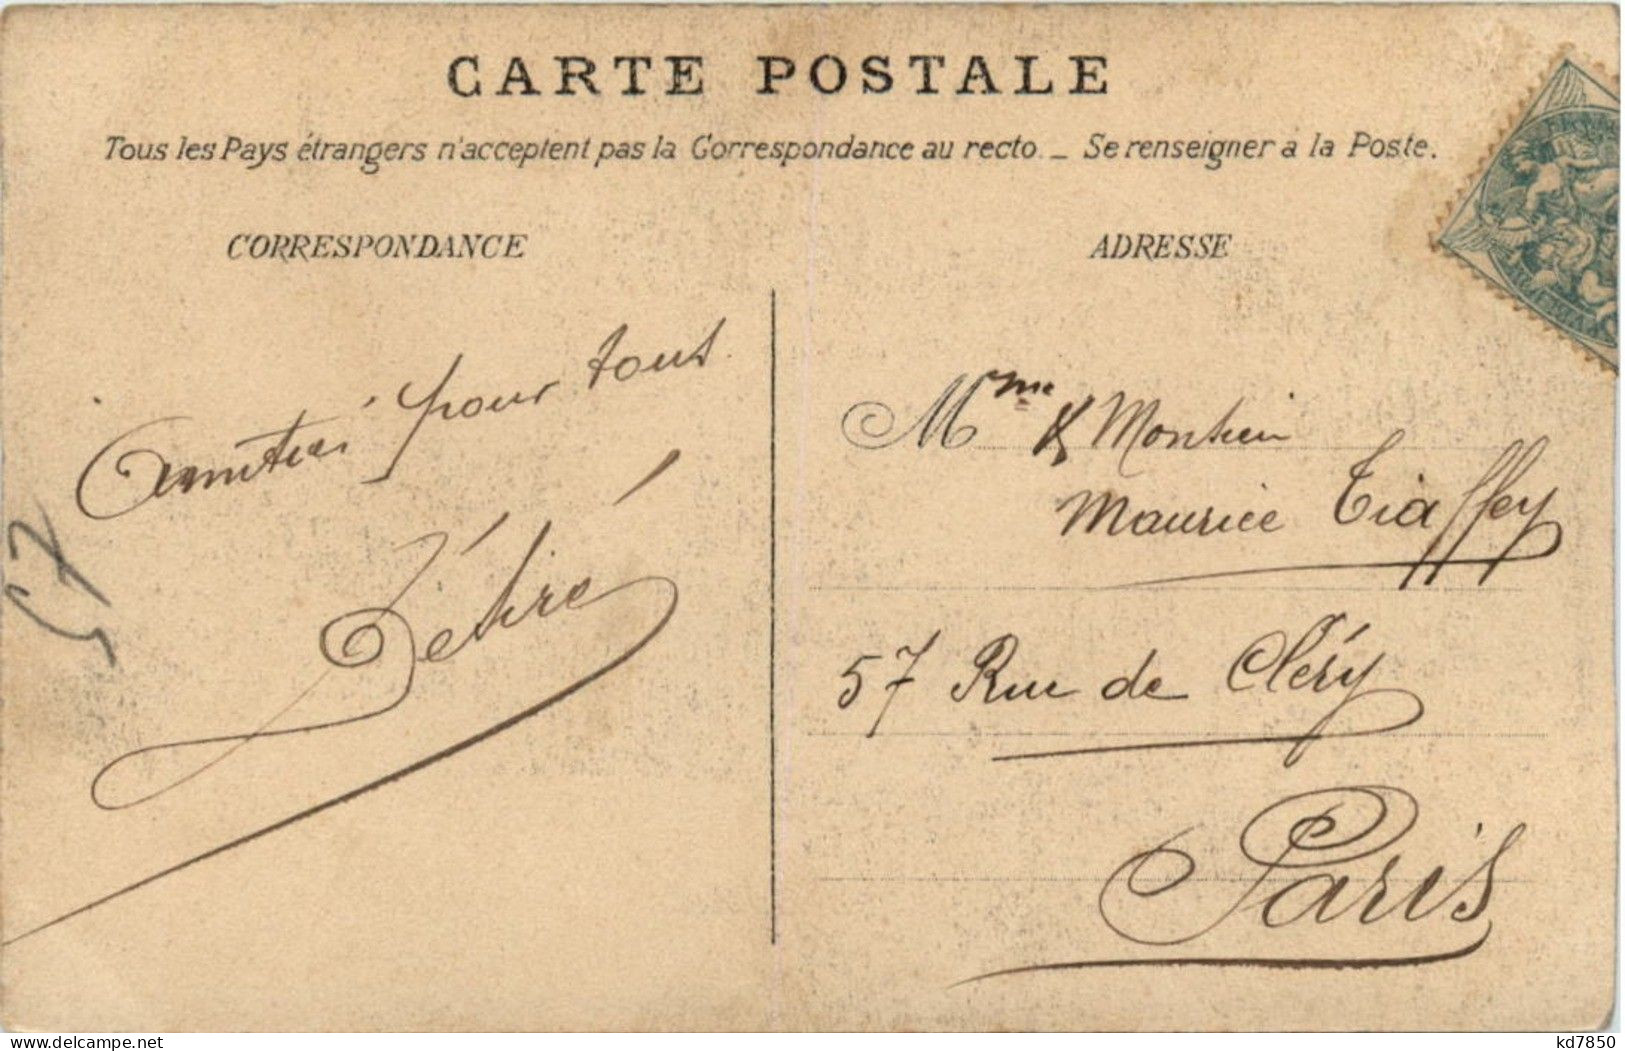 CARTE POSTALE
Tous les Pays étrangers n'acceptent pas la Correspondance au recto. _ Se renseigner à la Poste.
CORRESPONDANCE
ADRESSE
Amitiés pour tous
57
Mme & Monsieur
Maurice Tiaffey
57 Rue de Cléry
Paris
kd7850